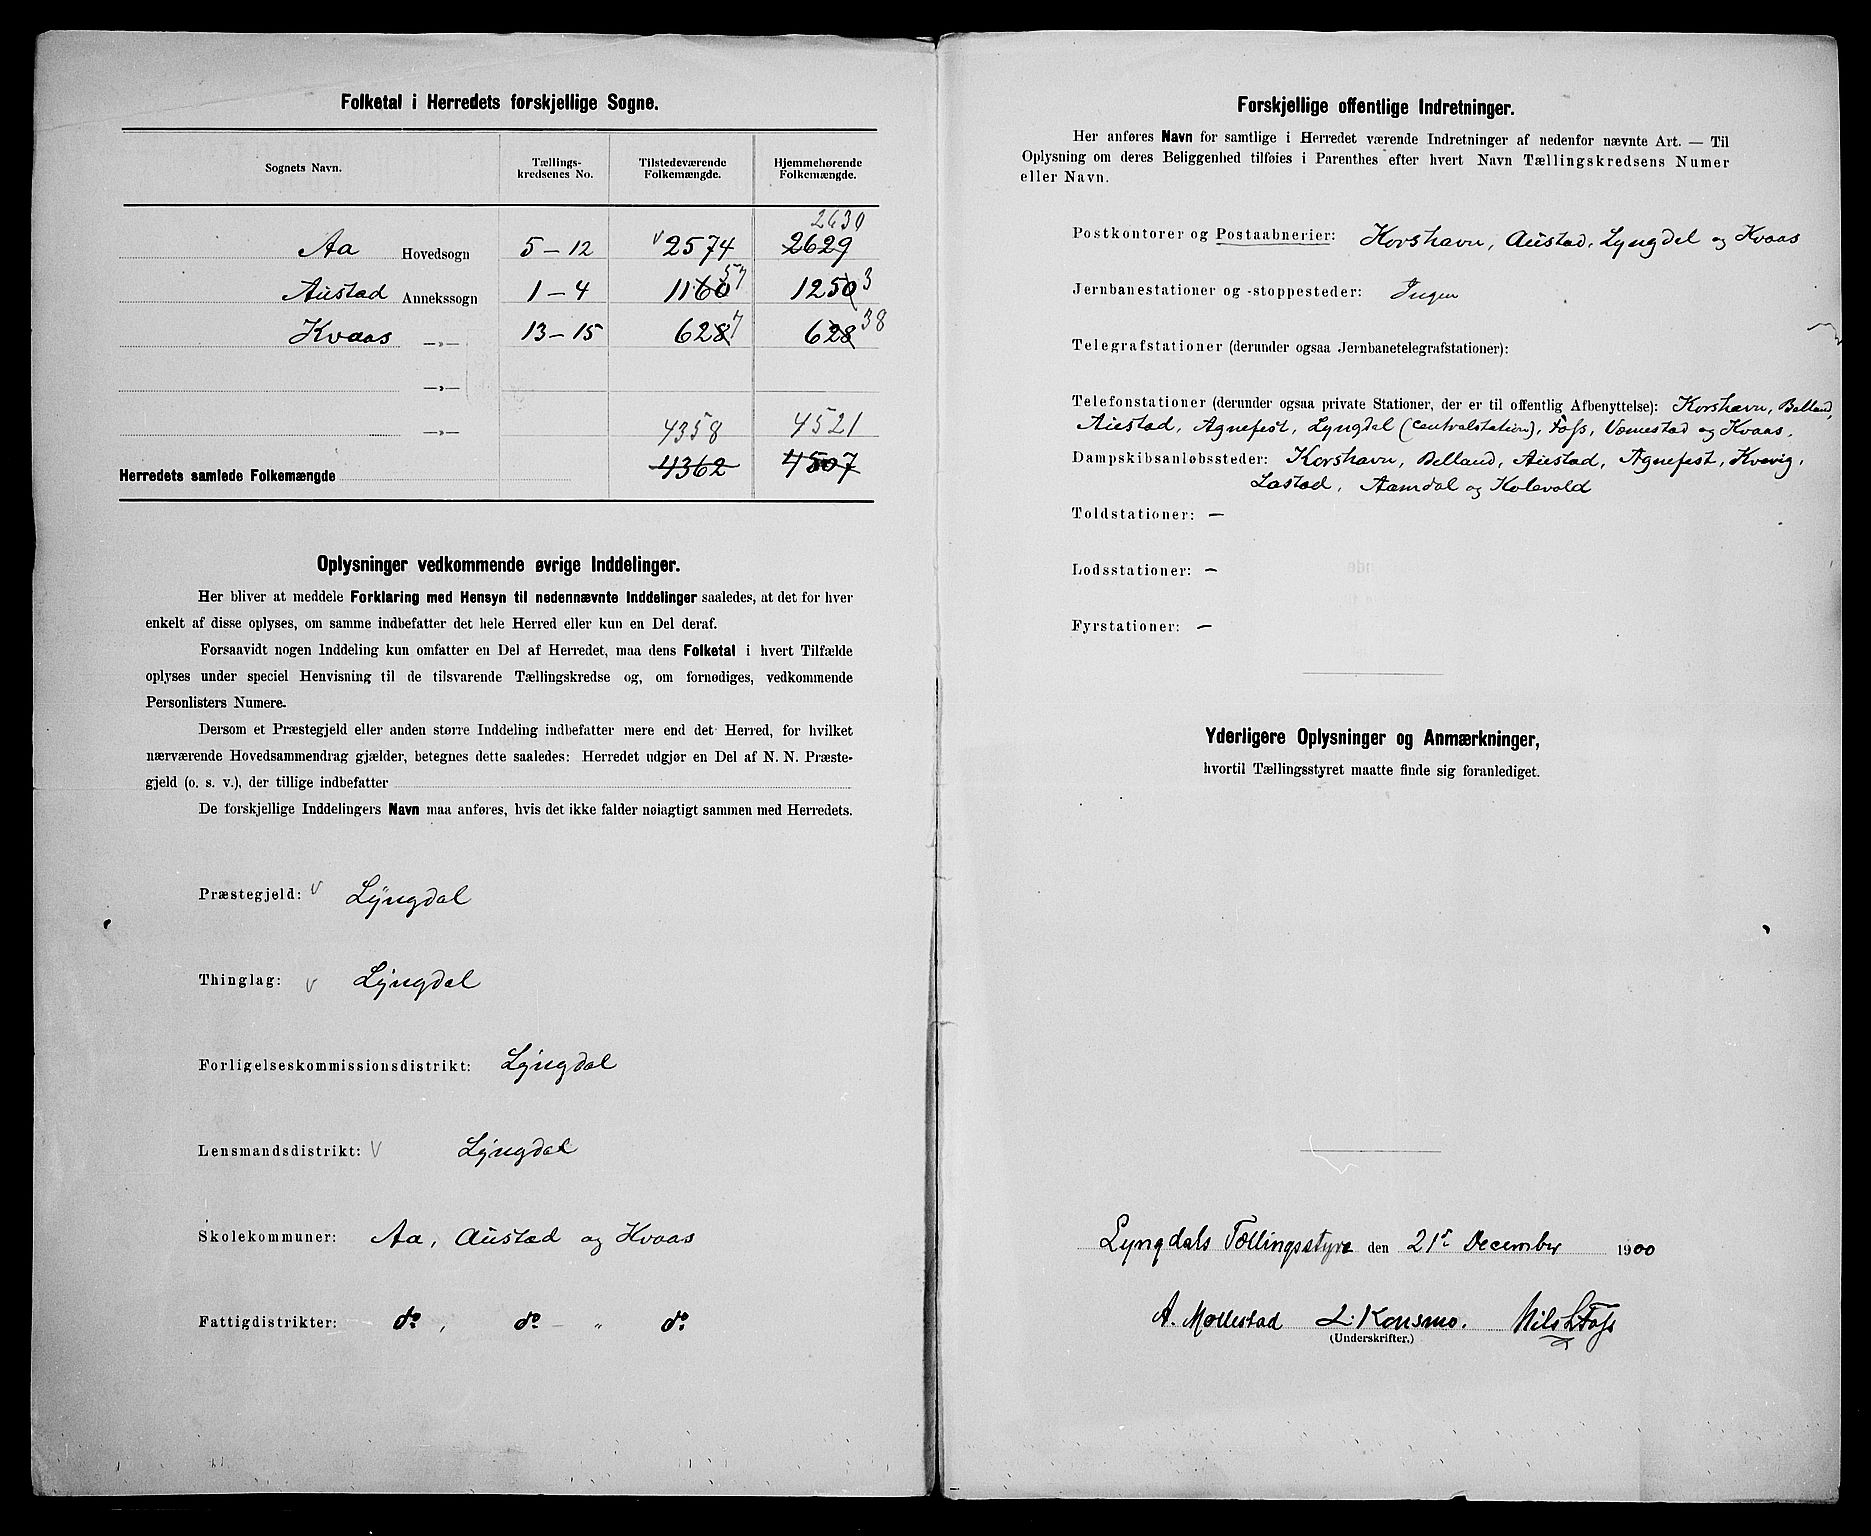 Folketal i Herredets forskjellige Sogne.
Sognets Navn. Tællings-kredsenes No. Tilstedeværende Folkemængde. Hjemmehørende Folkemængde.
2630
Aa Hovedsogn 5-12 v 2574 2629
Austad Annekssogn 1-4 1160 57 1250 3
Kvaas —„— 13-15 628 7 628 38
—„—
—„— 4358 4521
Herredets samlede Folkemængde 4362 4507
Oplysninger vedkommende øvrige Inddelinger.
Her bliver at meddele Forklaring med Hensyn til nedennævnte Inddelinger saaledes, at det for hver
enkelt af disse oplyses, om samme indbefatter det hele Herred eller kun en Del deraf.
Forsaavidt nogen Inddeling kun omfatter en Del af Herredet, maa dens Folketal i hvert Tilfælde
oplyses under speciel Henvisning til de tilsvarende Tællingskredse og, om fornødiges, vedkommende
Personlisters Numere.
Dersom et Præstegjeld eller anden større Inddeling indbefatter mere end det Herred, for hvilket
nærværende Hovedsammendrag gjælder, betegnes dette saaledes: Herredet udgjør en Del af N. N. Præste-
gjeld (o. s. v.), der tillige indbefatter
De forskjellige Inddelingers Navn maa anføres, hvis det ikke falder nøiagtigt sammen med Herredets.
Præstegjeld: v Lyngdal
Thinglag: v Lyngdal
Forligelseskommissionsdistrikt: Lyngdal
Lensmandsdistrikt: v Lyngdal
Skolekommuner: Aa, Austad og Kvaas
Fattigdistrikter: do, do - „ do
Forskjellige offentlige Indretninger.
Her anføres Navn for samtlige i Herredet værende Indretninger af nedenfor nævnte Art. — Til
Oplysning om deres Beliggenhed tilføies i Parenthes efter hvert Navn Tællingskredsens Numer
eller Navn.
Postkontorer og Postaabnerier: Korshavn, Austad, Lyngdal og Kvaas
Jernbanestationer og -stoppesteder: Ingen
Telegrafstationer (derunder ogsaa Jernbanetelegrafstationer):
Telefonstationer (derunder ogsaa private Stationer, der er til offentlig Afbenyttelse): Korshavn, Belland,
Austad, Agnefest, Lyngdal (centralstation), Foss, Vemestad og Kvaas.
Dampskibsanløbssteder: Korshavn, Belland, Austad, Agnefest, Kvavig,
Lastad, Aamdal og Kolevold
Toldstationer: —
Lodsstationer: —
Fyrstationer: —
Yderligere Oplysninger og Anmærkninger,
hvortil Tællingsstyret maatte finde sig foranlediget.
Lyngdals Tællingsstyre den 21de December 1900
A. Møllestad L. Konsmo. Nils L Foss
(Underskrifter.)